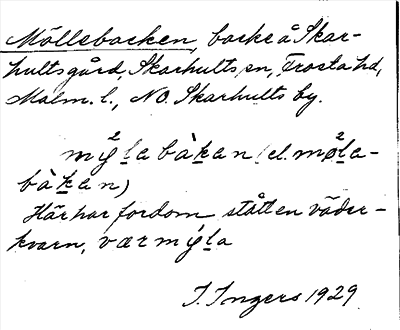 Möllebacken, backe å Skar-
hultsgård, Skarhults sn, Frosta hd,
Malm. l., NO. Skarhults by.
mỳ²la bàkan (el. mø²la-
bàkan)
Här har fordom stått en väder-
kvarn, værmýla
I. Ingers 1929